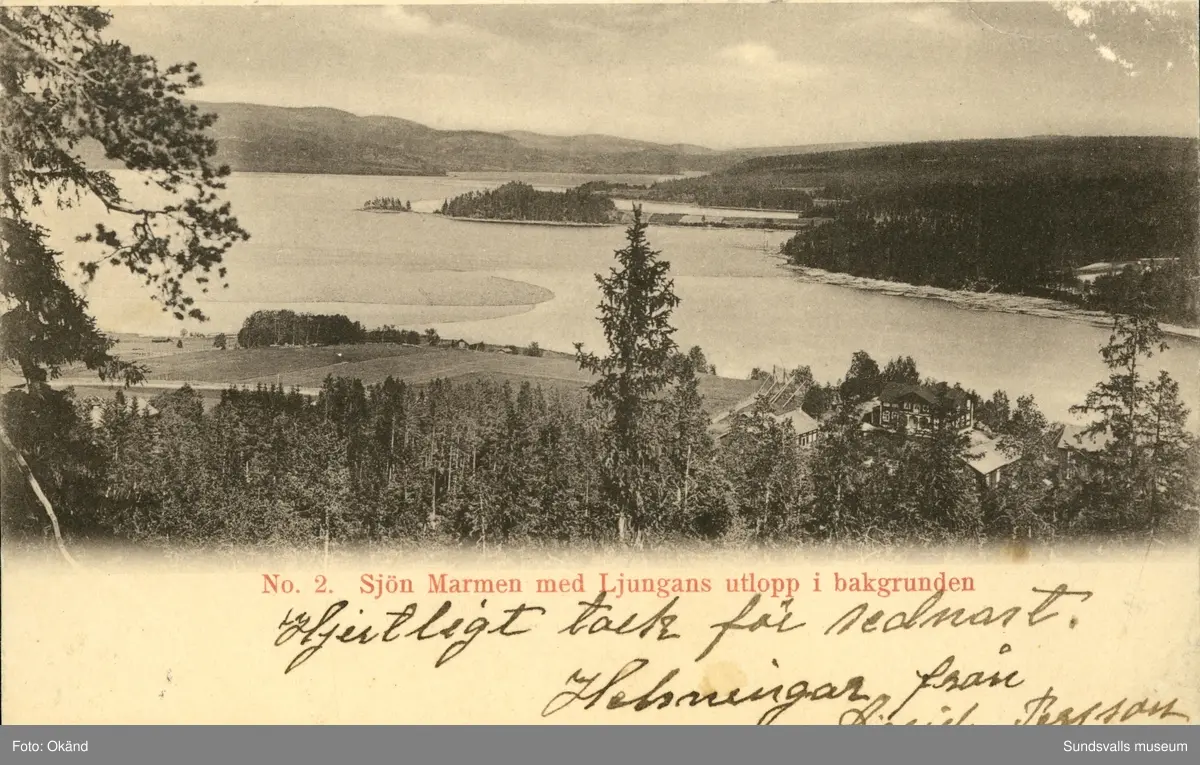 No. 2. Sjön Marmen med Ljungans utlopp i bakgrunden
Hjertligt tack för sednast.
Helsningar från
Persson
Foto: Okänd
Sundsvalls museum